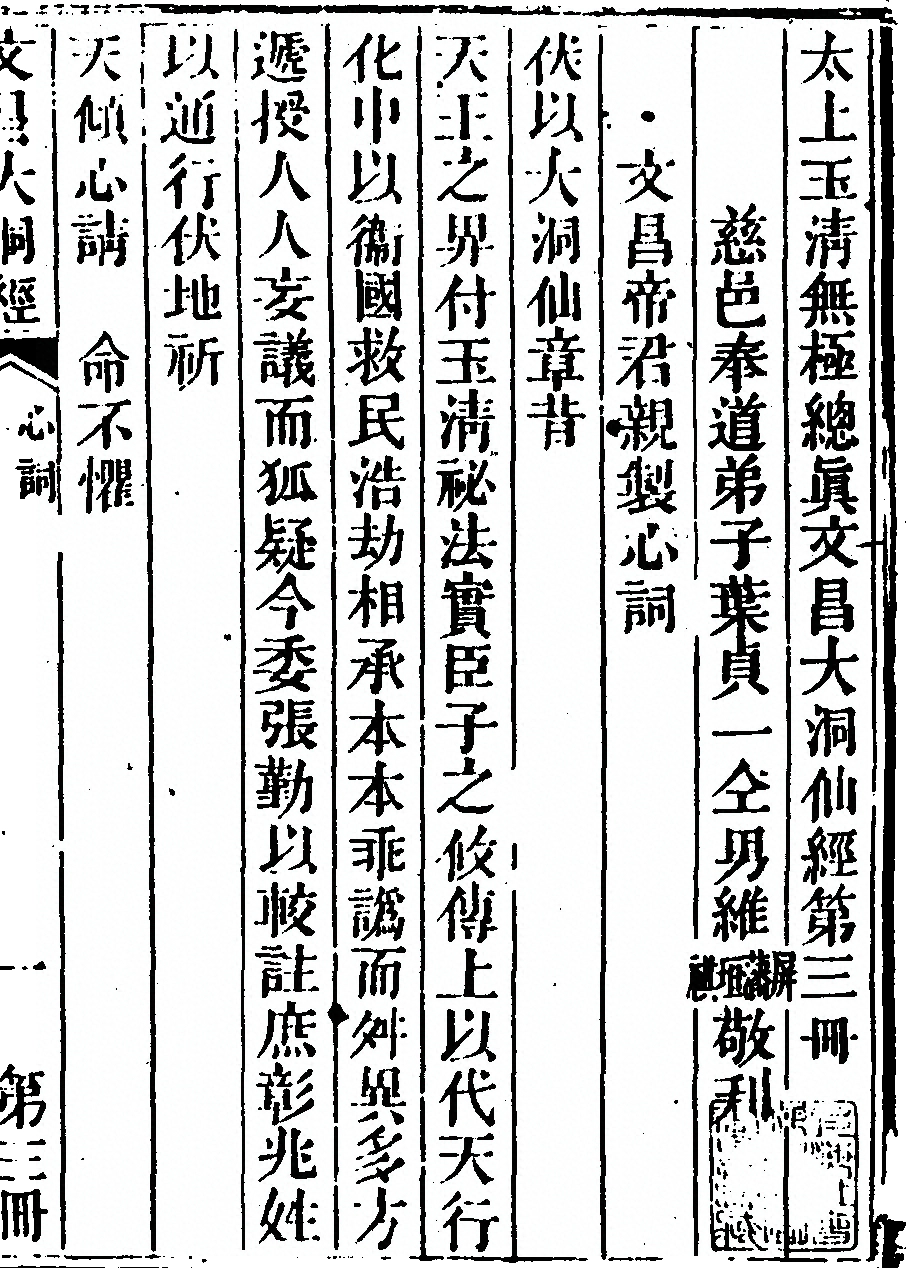 太上玉清無極總眞文昌大洞仙經第三冊
慈邑奉道弟子葉貞一仝男維屏藩垣祺敬利
文昌帝君親製心詞
伏以大洞仙章昔
天王之界付玉清祕法實臣子之攸傳上以代天行
化中以衞國救民浩劫相承本本乖譌而舛異多方
遞授人人妄議而狐疑今委張勤以較註庶彰兆姓
以通行伏地祈
天傾心請　命不懼
文昌大洞經　心詞　一　第三冊